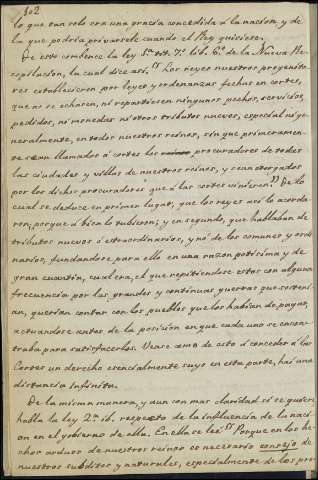 102
lo que tan solo era una gracia concedida á la nacion, y de
la que podria privarsele cuando el Rey quisiere.
De esto combence la ley 1.ª tit. 7.º lib. 6.º de la Nueva Re-
copilacion, la cual dice así. "Los reyes nuestros progenito-
res establecieron por leyes y ordenanzas fechas en cortes,
que no se echasen, ni repartiesen ningunos pechos, servicios,
pedidos, ni monedas ni otros tributos nuevos, especial ni ge-
neralmente, en todos nuestros reinos, sin que primeramen-
te sean llamados á cortes los procuradores de todas
las ciudades y villas de nuestros reinos, y sean otorgados
por los dichos procuradores que á las cortes vinieren." De lo
cual se deduce en primer lugar, que los reyes así lo acorda-
ron, porque á bien lo tubieron; y en segundo, que hablaban de
tributos nuevos ó estraordinarios, y no de los comunes y ordi-
narios, fundandose para ello en una razon potisima y de
gran cuantia, cual era, el que repitiendose estos con alguna
frecuencia por las grandes y continuas guerras que sosteni-
an, querian contar con los pueblos que los habian de pagar,
actuandose antes de la posicion en que cada uno se encon-
traba para satisfacerlos. Vease como de esto á conceder á las
Cortes un derecho esencialmente suyo en esta parte, hai una
distancia infinita.
De la misma manera, y aun con mas claridad si se quiere
habla la ley 2.ª ib. respecto de la influencia de la naci-
on en el gobierno de ella. En ella se lee "Porque en los he-
chos arduos de nuestros reinos es necesario consejo de
nuestros subditos y naturales, especialmente de los pro-